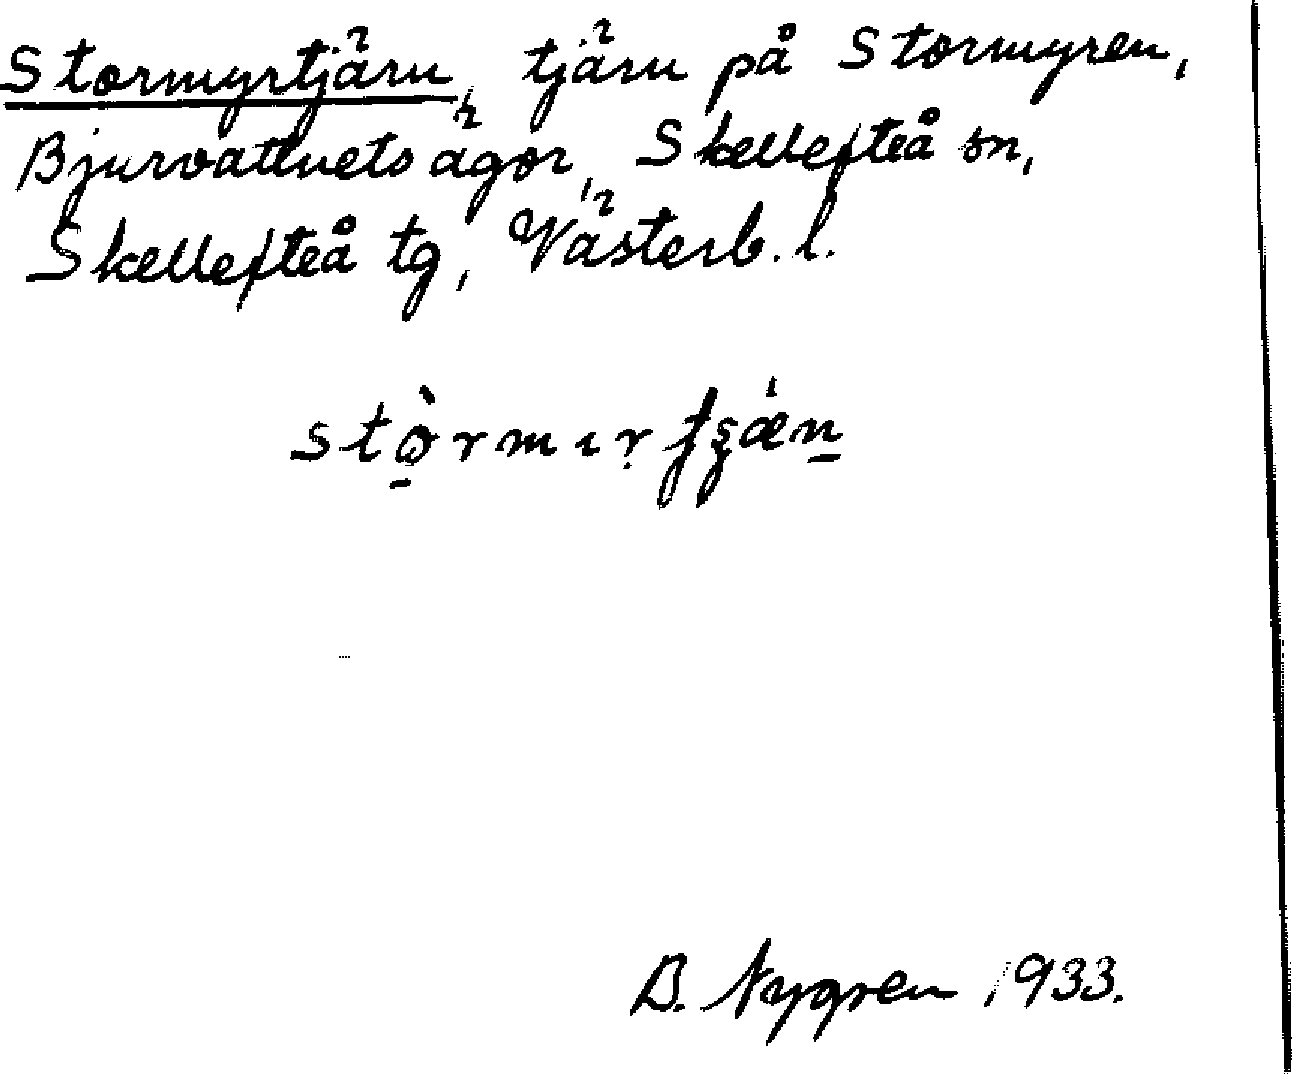 Stormyrtjärn, tjärn på Stormyren,
Bjurvattnets ägor, Skellefteå sn,
Skellefteå tg, Västerb. l.
B. Nygren 1933.